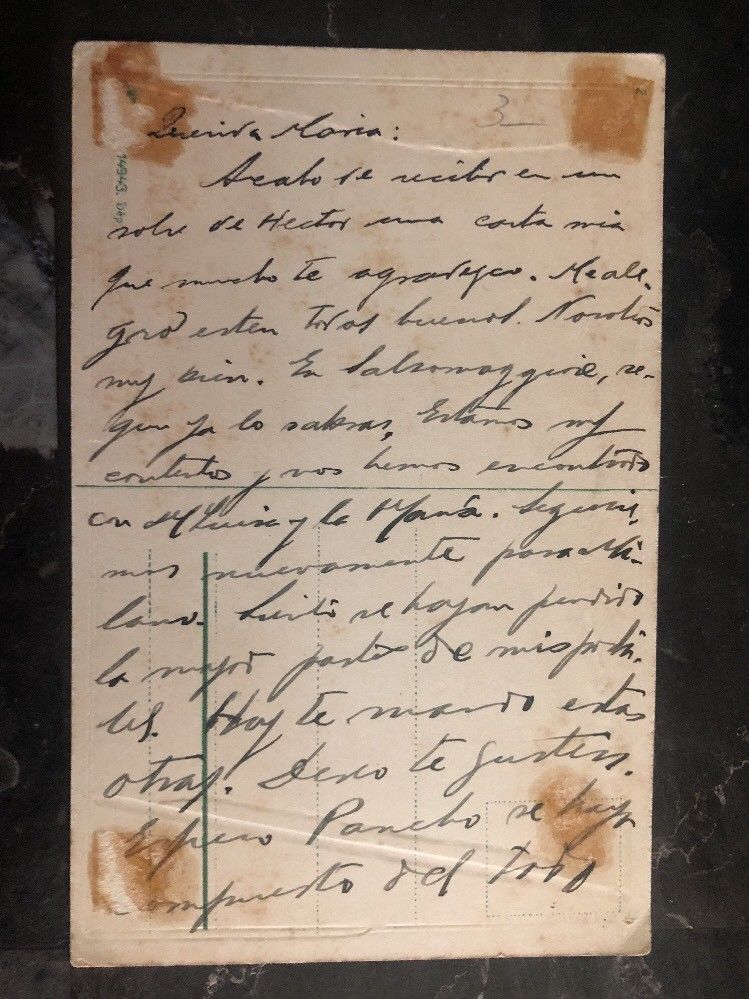 3
2
14943. Dep
Querida Maria:
Acabo de recibir en un
sobre de Hector una carta mia
que mucho te agradezco. Me ale-
gro esten todos buenos. Nosotros
muy bien. En Salsomaggiore, se-
gun ya lo sabras, Estamos muy
contentos y nos hemos encontrado
con M Luisa y la Mamá. Seguire-
mos nuevamente para Mi-
lano. Siento se hayan perdido
la mayor parte de mis posta-
les. Hoy te mando estas
otras. Deseo te gusten.
Espero Pancho se haya
compuesto del todo